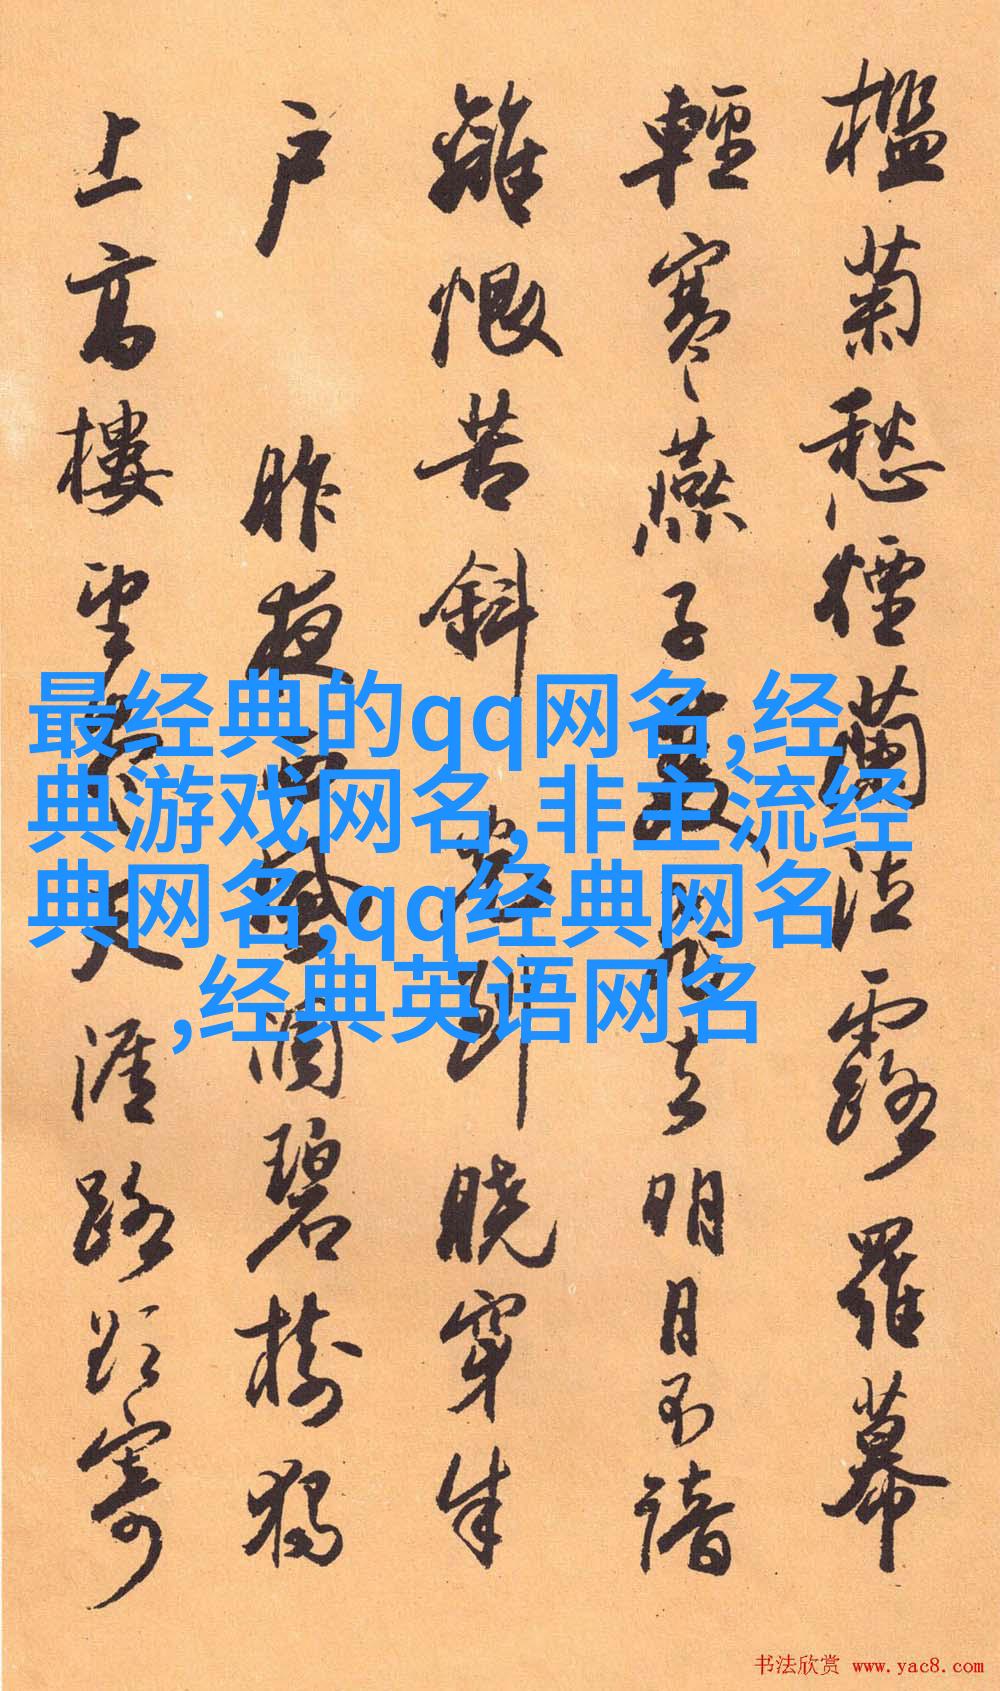 檻菊愁煙蘭泣露羅幕
輕寒燕子雙飛去明月不諳
離恨苦斜光到曉穿朱
户 昨夜西風凋碧樹獨
上高樓望盡天涯路欲寄
最经典的qq网名,经
典游戏网名,非主流经
典网名,qq经典网名
,经典英语网名
书法欣赏 www.yac8.com